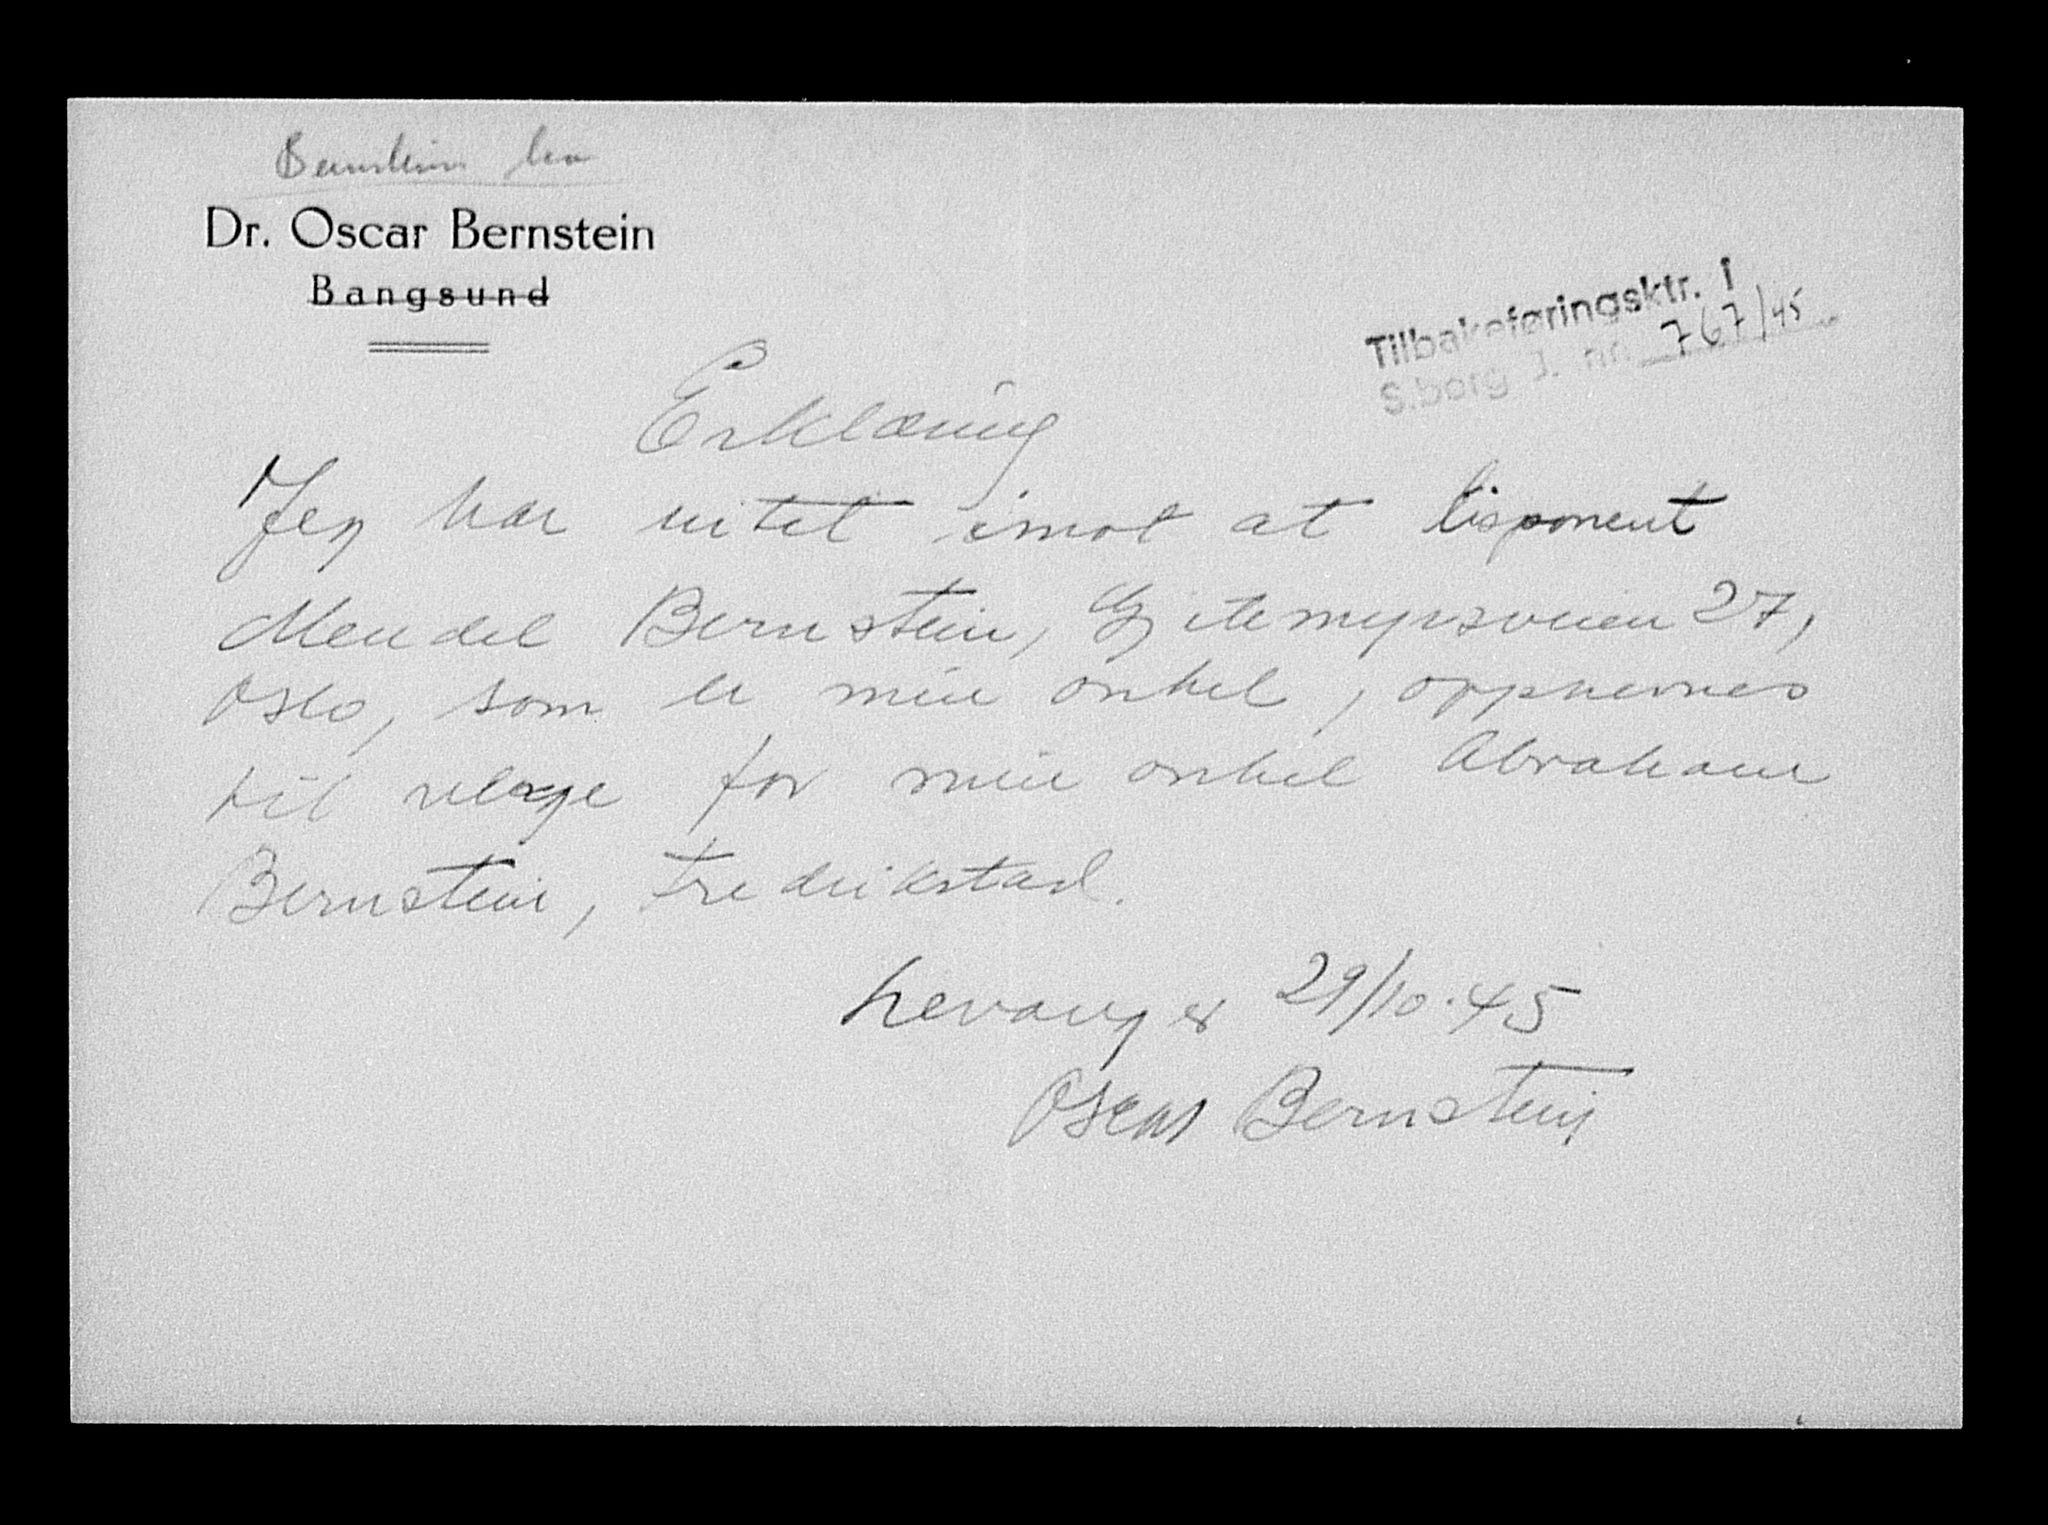 Bernstein
Dr. Oscar Bernstein
Bangsund
Tilbakeføringsktr. i
S.borg J. nr. 767/45
Erklæring
Jeg har intet imot at disponent
Mendel Bernstein, Gjitemyrsveien 27,
Oslo, som er min onkel, oppnevnes
til verge for min onkel Abraham
Bernstein, Fredrikstad.
Levanger 29/10.45
Oscar Bernstein